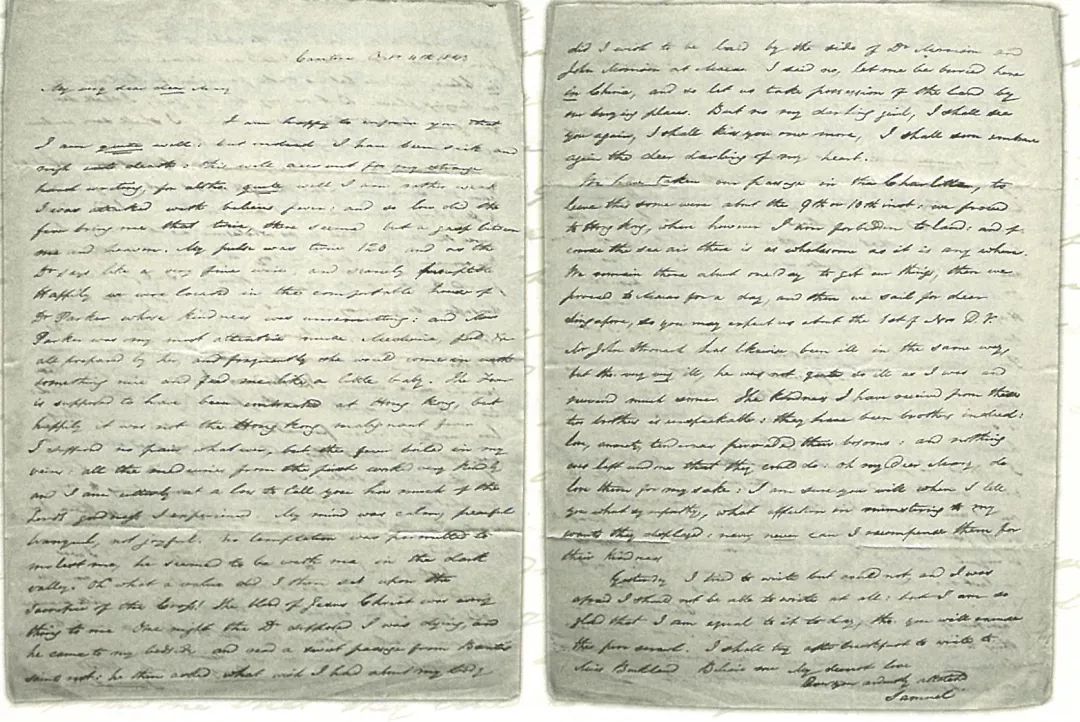 Canton Octr 4th 1843
My very dear dear Mary
I am happy to inform you that
I am quite well: but indeed I have been sick and
nigh unto death: this will account for my strange
hand writing, for altho' quite well I am rather weak
I was attacked with bilious fever: and so low did the
fever bring me that twice there seemed but a gasp between
me and heaven. My pulse was twice 120 and as the
Dr says like a very fine wire and scarcely perceptible
Happily we were located in the comfortable house of
Dr Parker whose kindness was unremitting: and Mrs
Parker was my most attentive nurse. Medicine, food &c
all prepared by her, and frequently she would come in with
something nice and feed me like a little baby. The fever
is supposed to have been contracted at Hong Kong, but
happily it was not the Hong Kong malignant fever
I suffered no pain whatever, but the fever boiled in my
veins: all the medicines from the first worked very kindly
and I am utterly at a loss to tell you how much of the
Lord's goodness I experienced My mind was calm, peaceful
tranquil, not joyful. No temptation was permitted to
molest me, he seemed to be with me in the dark
valley. Oh what a value did I then set upon the
sacrifice of the Cross! The blood of Jesus Christ was every
thing to me One night the Dr supposed I was dying, and
he came to my bedside and read a sweet passage from Baxter's
saints rest: he then asked what wish I had about my body
did I wish to be laid by the side of Dr Morrison and
John Morrison at Macao I said no, let me be buried here
in China, and so let us take possession of the land by
our burying places. But no my darling girl, I shall see
you again, I shall kiss you once more, I shall soon embrace
again the dear darling of my heart.
We have taken our passage in the Charlotte, to
leave this some where about the 9th or 10th inst: we proceed
to Hong Kong, where however I am forbidden to land: and of
course the sea air there is as wholesome as it is any where.
We remain there about one day to get our things, then we
proceed to Macao for a day, and then we sail for dear
Singapore, so you may expect us about the 1st of Nov D.V.
Mr John Stronach has likewise been ill in the same way,
but tho very ill, he was not quite so ill as I was and
recovered much sooner. The kindness I have received from these
two brothers is unspeakable: they have been brothers indeed:
love, anxiety, tenderness pervaded their bosoms: and nothing
was left undone that they could do: oh my Dear Mary, do
love them for my sake: I am sure you will when I tell
you what sympathy, what affection in ministering to my
wants they displayed: never, never can I recompense them for
their kindness
Yesterday I tried to write but could not, and I was
afraid I should not be able to write at all: but I am so
glad that I am equal to it to day, tho you will excuse
the poor scrawl. I shall try after breakfast to write to
Miss Buckland Believe me My dearest love
Your ardently attached
Samuel